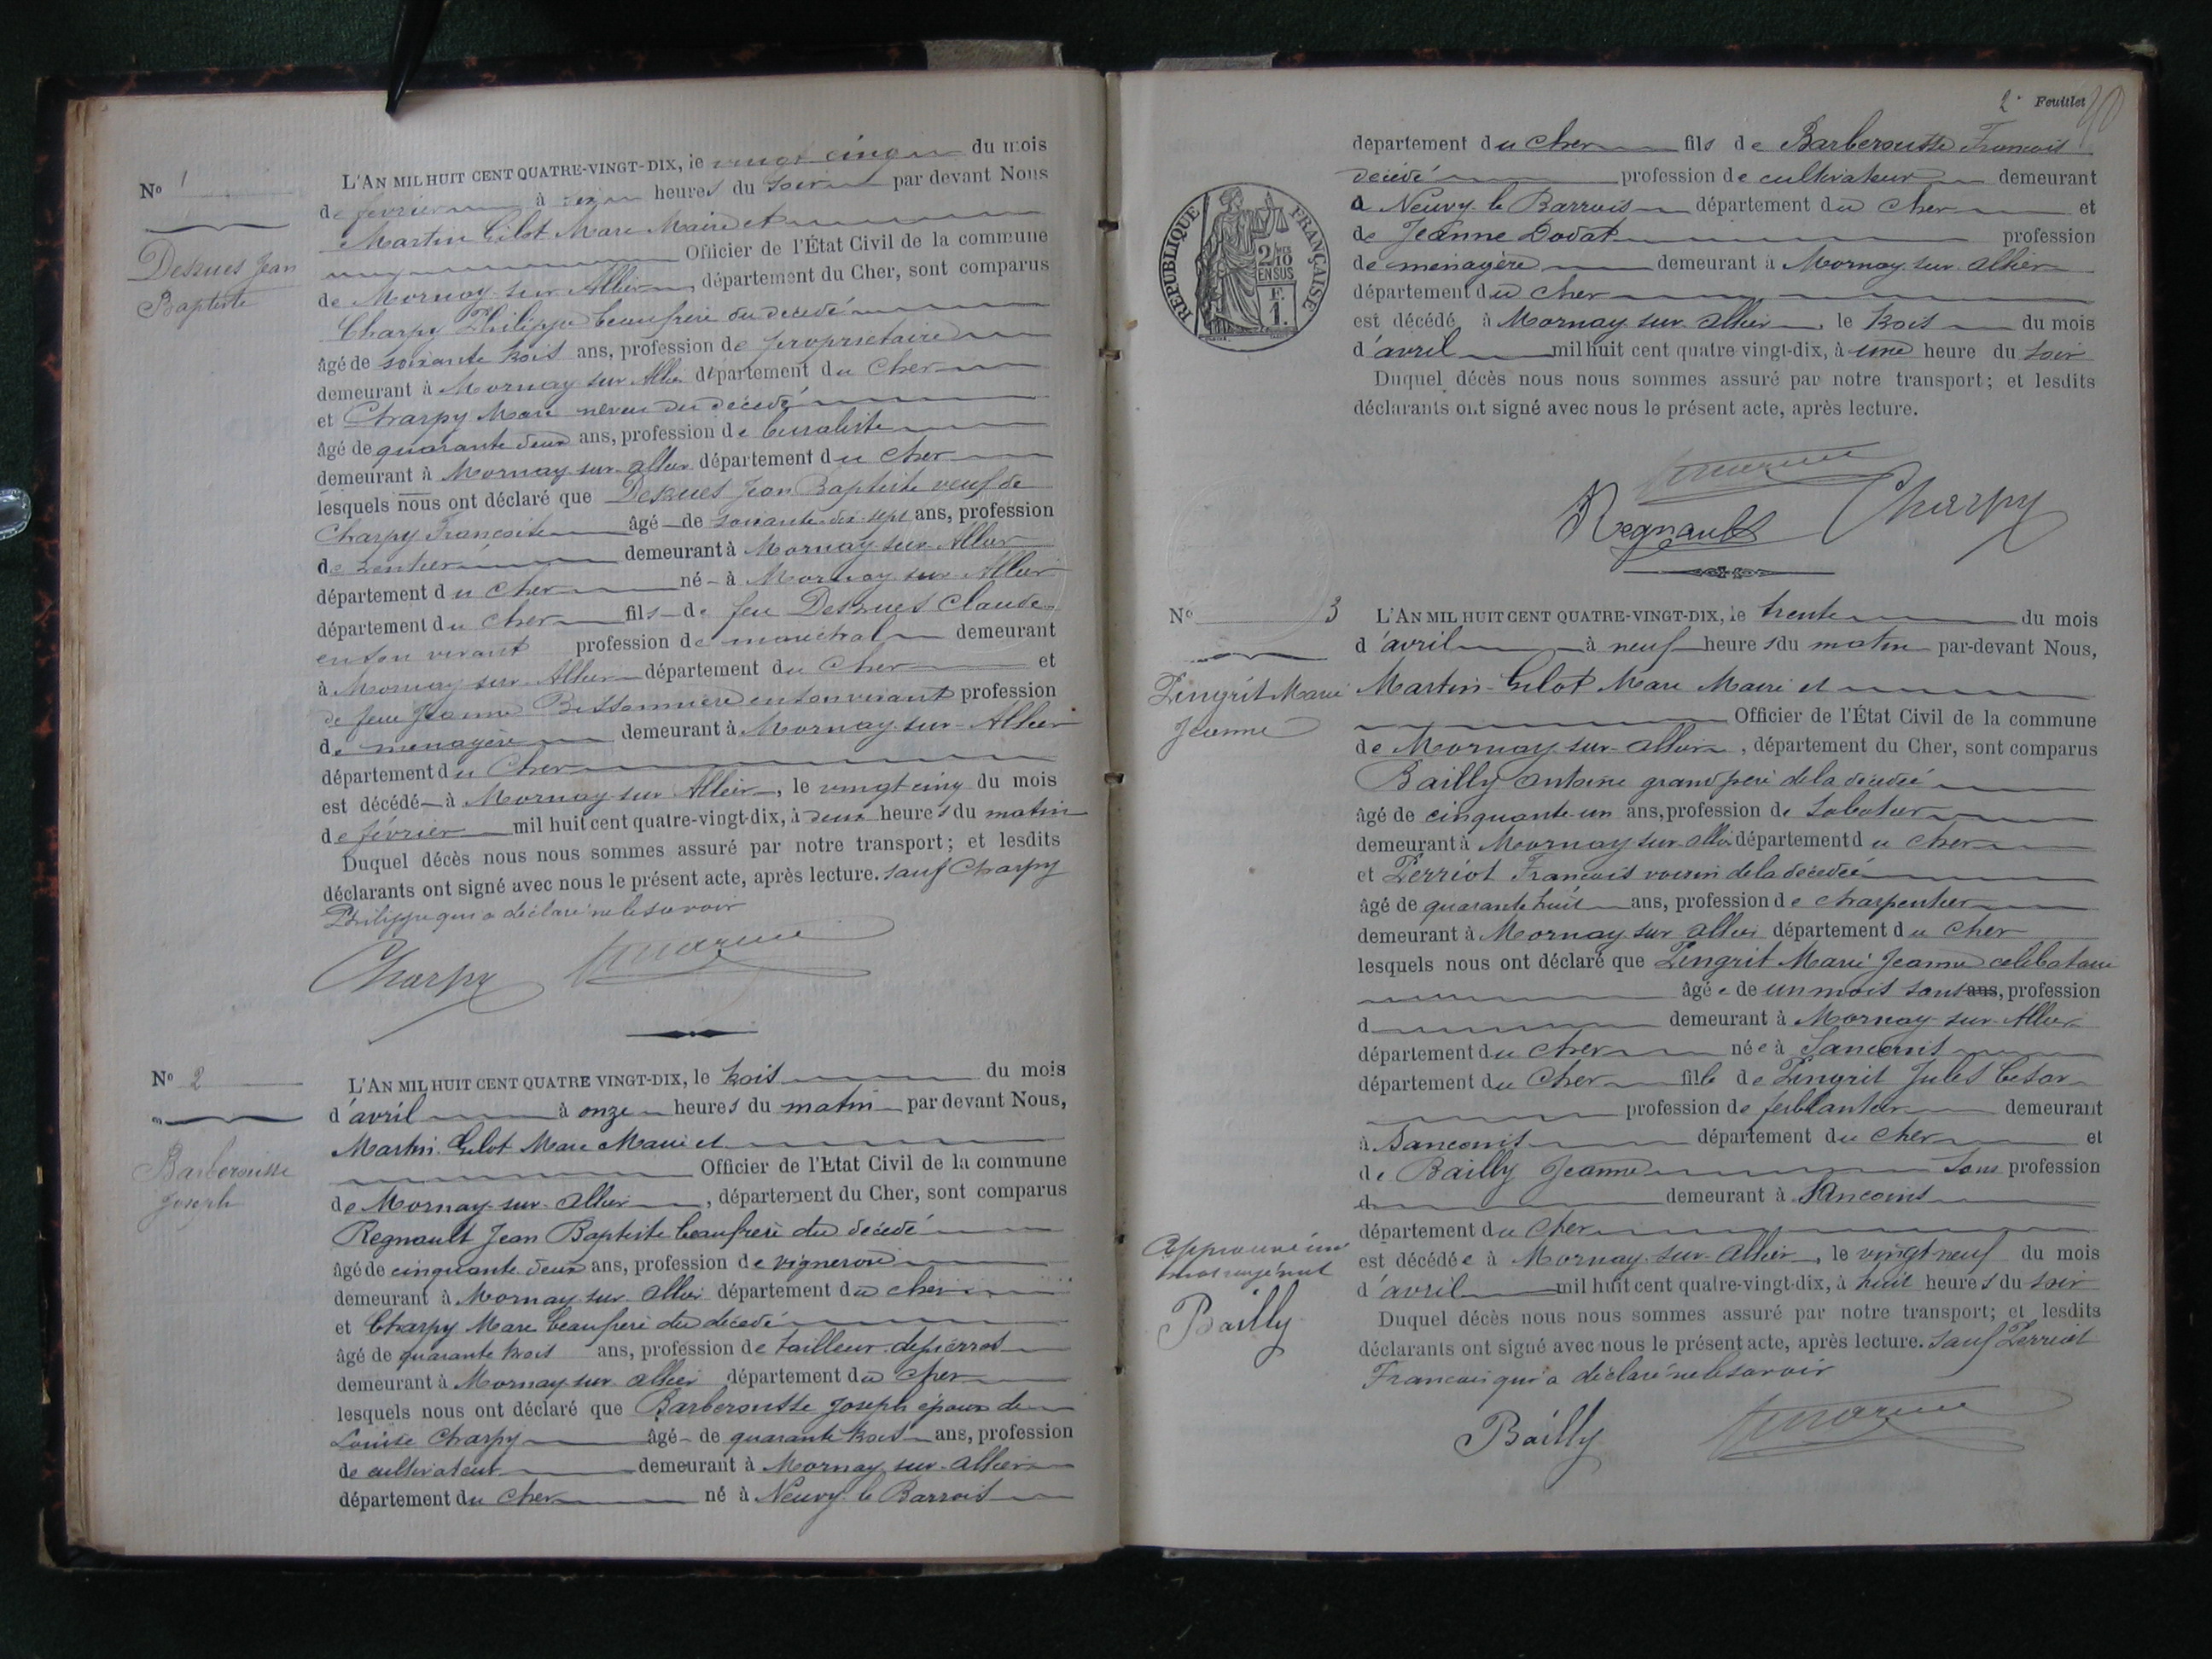 N° 1
Desrues Jean
Baptiste
L'AN MIL HUIT CENT QUATRE-VINGT-DIX, le vingt cinq du mois
de fevrier à six heures du soir par devant Nous
Martin Gilot Marc Maire et
Officier de l'État Civil de la commune
de Mornay-sur-Allier, département du Cher, sont comparus
Charpy Philippe beaufrère du décédé
âgé de soixante trois ans, profession de propriétaire
demeurant à Mornay sur Allier département du Cher
et Charpy Marc neveu du décédé
âgé de quarante deux ans, profession de buraliste
demeurant à Mornay-sur-allier département du Cher
lesquels nous ont déclaré que Desrues Jean Baptiste veuf de
Charpy Françoise âgé de soixante-dix-sept ans, profession
de rentier demeurant à Mornay-sur-Allier
département du Cher né à Mornay sur Allier
département du Cher fils de feu Desrues Claude
en son vivant profession de maréchal demeurant
à Mornay sur Allier département du Cher et
de feue Jeanne Bissonnière en son vivant profession
de menagère demeurant à Mornay-sur-Allier
département du Cher
est décédé à Mornay-sur Allier, le vingt cinq du mois
de février mil huit cent quatre-vingt-dix, à deux heures du matin
Duquel décès nous nous sommes assuré par notre transport; et lesdits
déclarants ont signé avec nous le présent acte, après lecture. sauf Charpy
Philippe qui a déclaré ne le savoir
Charpy
N° 2
Barberousse
Joseph
L'AN MIL HUIT CENT QUATRE VINGT-DIX, le trois du mois
d'avril à onze heures du matin par devant Nous,
Martin Gilot Marc Maire et
Officier de l'Etat Civil de la commune
de Mornay-sur-allier, département du Cher, sont comparus
Regnault Jean Baptiste beaufrère du décédé
âgé de cinquante deux ans, profession de vigneron
demeurant à Mornay-sur allier département du cher
et Charpy Marc beaufrère du décédé
âgé de quarante trois ans, profession de tailleur de pierres
demeurant à Mornay-sur allier département du Cher
lesquels nous ont déclaré que Barberousse Joseph époux de
Louise Charpy âgé de quarante trois ans, profession
de cultivateur demeurant à Mornay sur-allier
département du Cher né à Neuvy-le Barrois
2e Feuillet
RÉPUBLIQUE FRANÇAISE
2/10 EN SUS
F. 1.
departement du Cher fils de Barberousse Francois
décédé profession de cultivateur demeurant
à Neuvy-le Barrois département du Cher et
de Jeanne Dodat profession
de ménagère demeurant à Mornay sur allier
département du Cher
est décédé à Mornay sur allier, le trois du mois
d'avril mil huit cent quatre vingt-dix, à une heure du soir
Duquel décès nous nous sommes assuré par notre transport; et lesdits
déclarants ont signé avec nous le présent acte, après lecture.
Regnault Charpy
N° 3
Pengrit Marie
Jeanne
L'AN MIL HUIT CENT QUATRE-VINGT-DIX, le trente du mois
d'avril à neuf heures du matin par-devant Nous,
Martin-Gilot Marc Maire et
Officier de l'État Civil de la commune
de Mornay-sur-allier, département du Cher, sont comparus
Bailly antoine grand père de la décédée
âgé de cinquante-un ans, profession de Sabotier
demeurant à Mornay sur allier département du cher
et Perriot Francois voisin de la décédée
âgé de quarante huit ans, profession de charpentier
demeurant à Mornay-sur allier département du Cher
lesquels nous ont déclaré que Pengrit Marie Jeanne celibataire
âgée de un mois sans ans, profession
d demeurant à Mornay-sur-Allier
département du Cher née à Sancoins
département du Cher fille de Pengrit Jules Cesar
profession de ferblantier demeurant
à Sancoins département du Cher et
de Bailly Jeanne sans profession
d demeurant à Sancoins
département du Cher
est décédée à Mornay-sur-allier, le vingt neuf du mois
d'avril mil huit cent quatre-vingt-dix, à huit heures du soir
Duquel décès nous nous sommes assuré par notre transport; et lesdits
déclarants ont signé avec nous le présent acte, après lecture. sauf Perriot
Francois qui a déclaré ne le savoir
Approuvé un
mot rayé nul
Bailly
Bailly